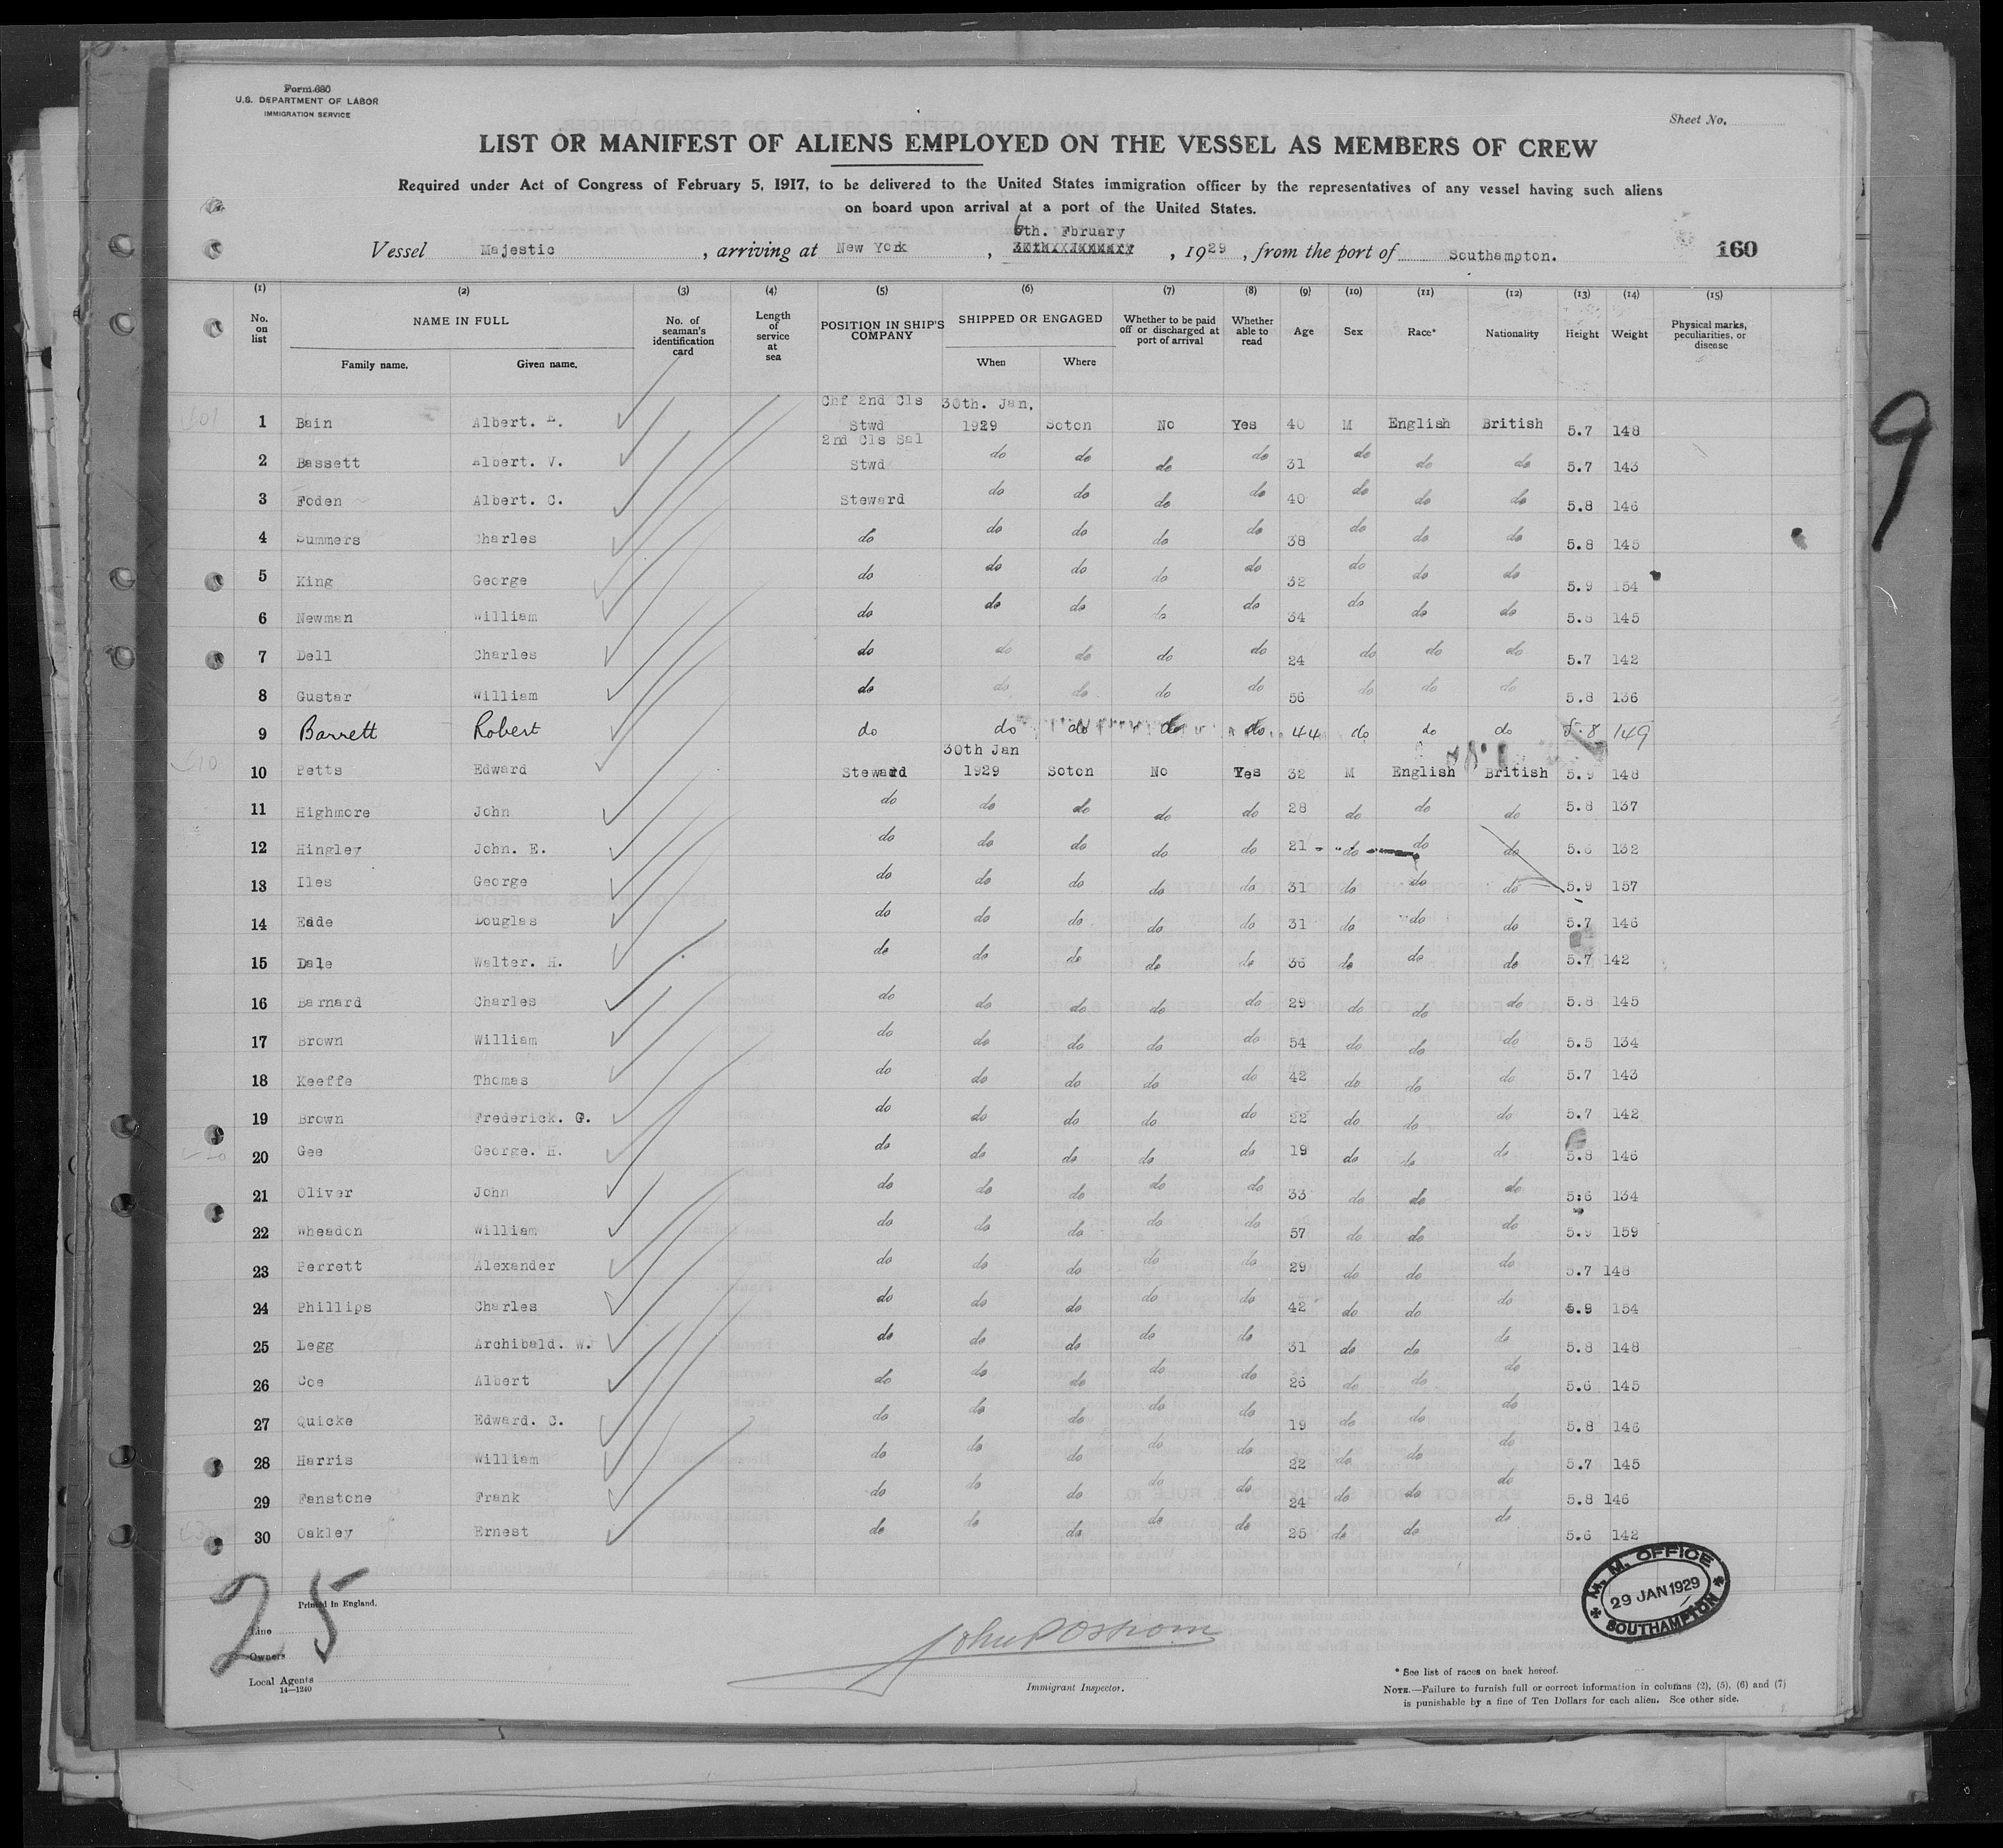 Form 680
U.S. DEPARTMENT OF LABOR
IMMIGRATION SERVICE
Sheet No.
LIST OR MANIFEST OF ALIENS EMPLOYED ON THE VESSEL AS MEMBERS OF CREW
Required under Act of Congress of February 5, 1917, to be delivered to the United States immigration officer by the representatives of any vessel having such aliens
on board upon arrival at a port of the United States.
6th. Fbruary
Vessel Majestic, arriving at New York, , 1929, from the port of Southampton. 160
(1) (2) (3) (4) (5) (6) (7) (8) (9) (10) (11) (12) (13) (14) (15)
No. on list NAME IN FULL Family name. Given name. No. of seaman's identification card Length of service at sea POSITION IN SHIP'S COMPANY SHIPPED OR ENGAGED When Where Whether to be paid off or discharged at port of arrival Whether able to read Age Sex Race* Nationality Height Weight Physical marks, peculiarities, or disease
1 Bain Albert. Chf 2nd Cls Stwd 30th. Jan, 1929 Soton No Yes 40 M English British 5.7 148
2 Bassett Albert. V. 2nd Cls Sal Stwd do do do do 31 do do do 5.7 143
3 Foden Albert. C. Steward do do do do 40 do do do 5.8 146
4 Summers Charles do do do do do 38 do do do 5.8 145
5 King George do do do do do 32 do do do 5.9 154
6 Newman William do do do do do 34 do do do 5.8 145
7 Dell Charles do do do do do 24 do do do 5.7 142
8 Gustar William do do do do do 56 do do do 5.8 136
9 Barrett Robert do do do do do 44 do do do 5.8 149
10 Petts Edward Steward 30th Jan 1929 Soton No Yes 32 M English British 5.9 148
11 Highmore John do do do do do 28 do do do 5.8 137
12 Hingley John. E. do do do do do 21 do do do 5.6 132
13 Iles George do do do do do 31 do do do 5.9 157
14 Eade Douglas do do do do do 31 do do do 5.7 146
15 Dale Walter. H. do do do do do 36 do do do 5.7 142
16 Barnard Charles do do do do do 29 do do do 5.8 145
17 Brown William do do do do do 54 do do do 5.5 134
18 Keeffe Thomas do do do do do 42 do do do 5.7 143
19 Brown Frederick. G. do do do do do 22 do do do 5.7 142
20 Gee George. H. do do do do do 19 do do do 5.8 146
21 Oliver John do do do do do 33 do do do 5:6 134
22 Wheadon William do do do do do 57 do do do 5.9 159
23 Perrett Alexander do do do do do 29 do do do 5.7 148
24 Phillips Charles do do do do do 42 do do do 5.9 154
25 Legg Archibald. W. do do do do do 31 do do do 5.8 148
26 Coe Albert do do do do do 26 do do do 5.6 145
27 Quicke Edward. C. do do do do do 19 do do do 5.8 146
28 Harris William do do do do do 22 do do do 5.7 145
29 Fanstone Frank do do do do do 24 do do do 5.8 146
30 Oakley Ernest do do do do do 25 do do do 5.6 142
9
25
Printed in England.
M. M. OFFICE
29 JAN 1929
SOUTHAMPTON
Line
Owners
Local Agents
14—1240
Immigrant Inspector.
* See list of races on back hereof.
NOTE.—Failure to furnish full or correct information in columns (2), (5), (6) and (7)
is punishable by a fine of Ten Dollars for each alien. See other side.